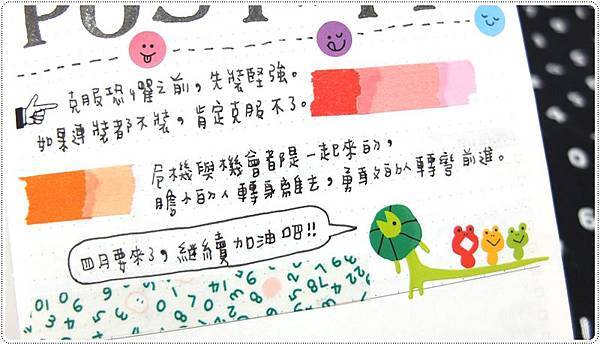 克服恐懼之前，先裝堅強。
如果連裝都不裝，肯定克服不了。
危機與機會都是一起來的，
膽小的人轉身離去，勇敢的人轉彎前進。
四月要來了，繼續加油吧!!